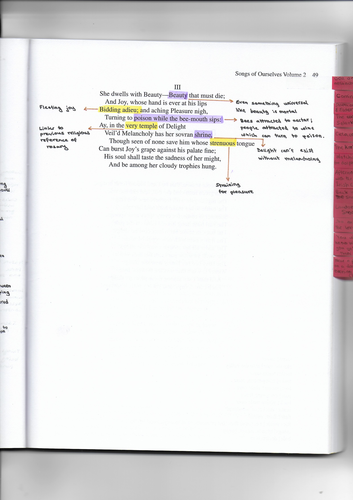 Songs of Ourselves Volume 2 49
III
She dwells with Beauty—Beauty that must die;
And Joy, whose hand is ever at his lips
Bidding adieu; and aching Pleasure nigh,
Turning to poison while the bee-mouth sips:
Ay, in the very temple of Delight
Veil'd Melancholy has her sovran shrine,
Though seen of none save him whose strenuous tongue
Can burst Joy's grape against his palate fine;
His soul shall taste the sadness of her might,
And be among her cloudy trophies hung.
Fleeting joy
Links to
previous religious
reference of
Even something universal
like beauty is mortal
Bees attracted to nectar;
people attracted to wine
which can turn to poison.
Delight can't exist
without melancholy
Straining
for pleasure